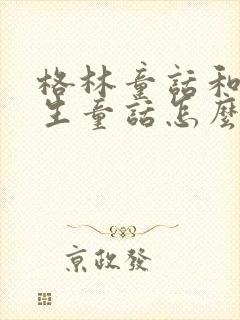 格林童話和
生童話怎麼
京政發